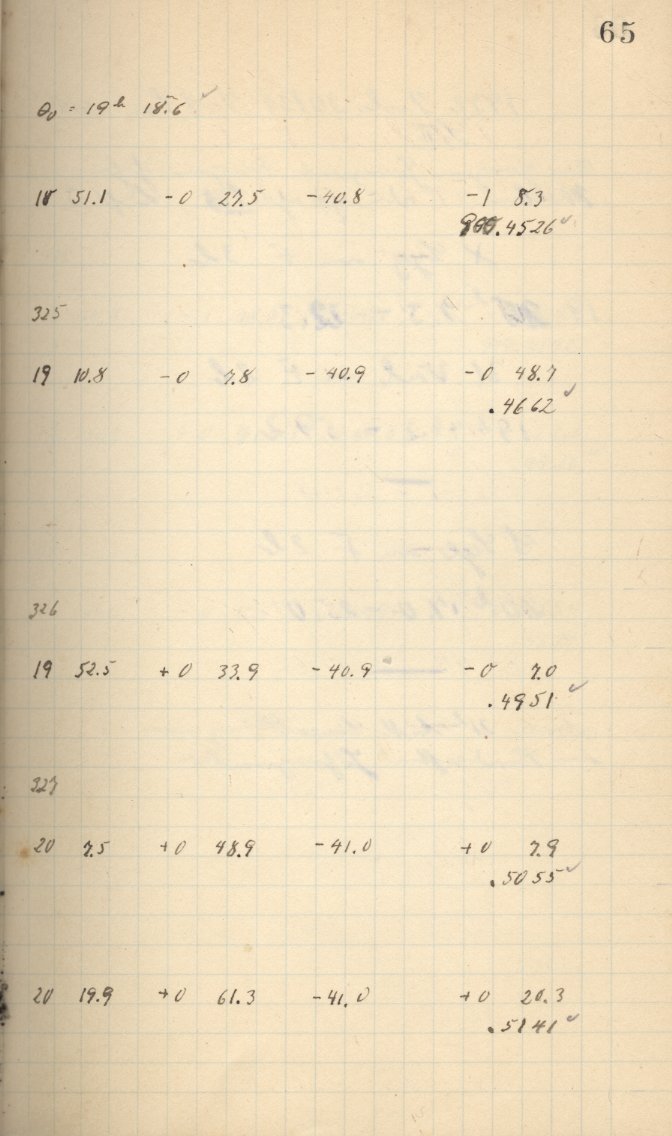 65
θ₀ = 19ʰ 18.6 ✓
18 51.1 -0 27.5 -40.8 -1 8.3
.4526 ✓
325
19 10.8 -0 7.8 -40.9 -0 48.7
.4662 ✓
326
19 52.5 +0 33.9 -40.9 -0 7.0
.4951 ✓
327
20 7.5 +0 48.9 -41.0 +0 7.9
.5055 ✓
20 19.9 +0 61.3 -41.0 +0 20.3
.5141 ✓